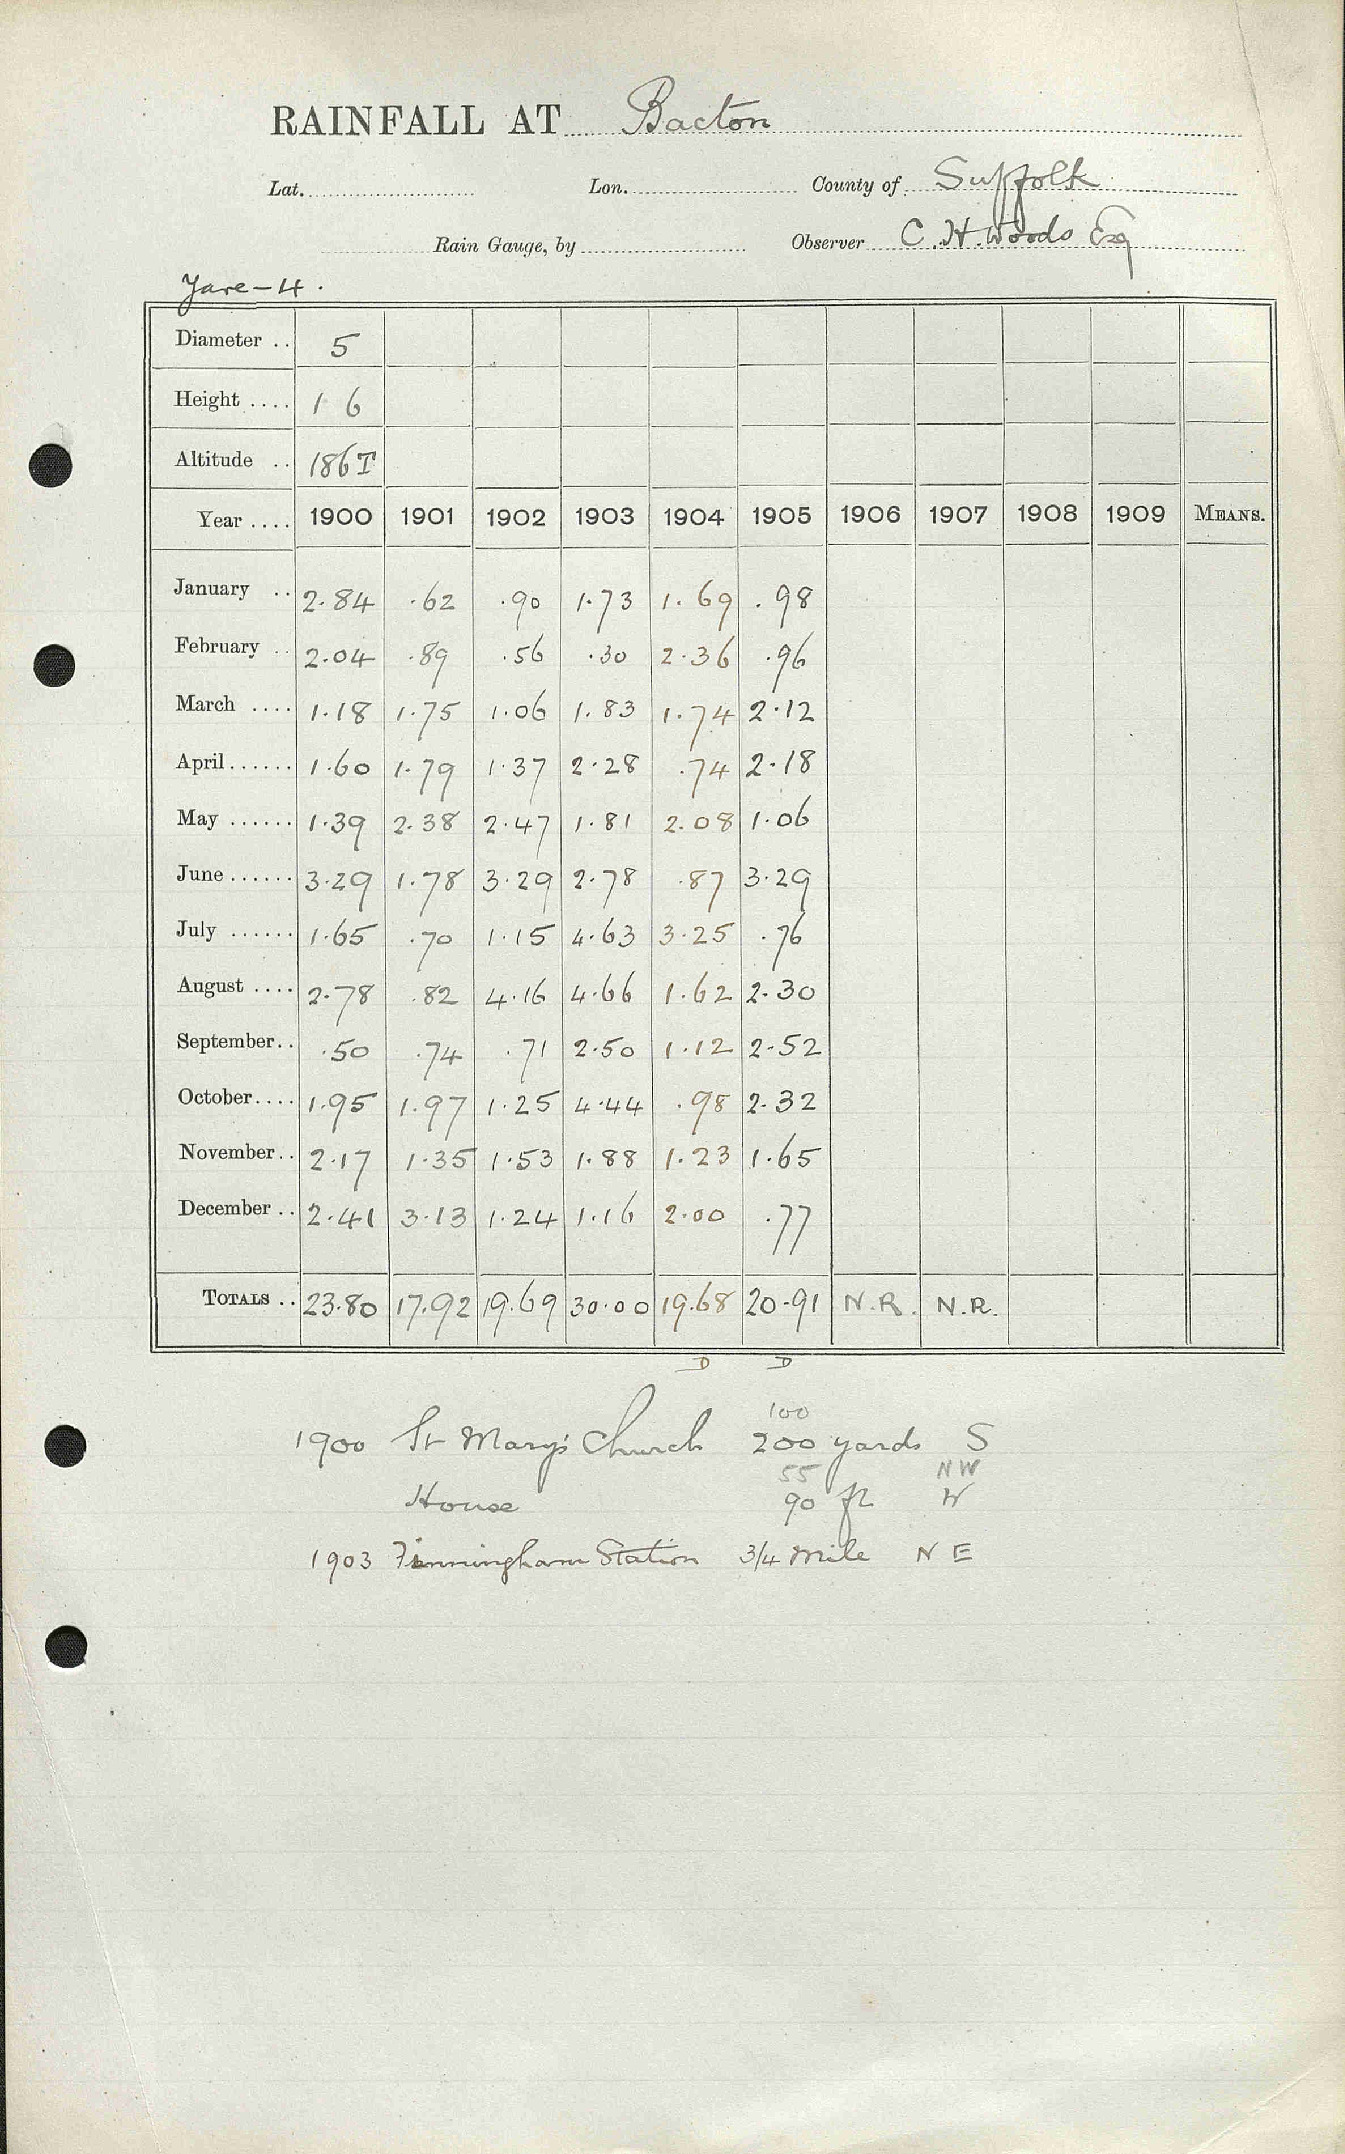 RAINFALL AT Bacton
Lat. Lon. County of Suffolk
Rain Gauge, by Observer C. H. Woods Esq
Yare - 4.
Diameter .. 5
Height .... 1 6
Altitude .. 186T
Year .... 1900 1901 1902 1903 1904 1905 1906 1907 1908 1909 MEANS.
January .. 2.84 .62 .90 1.73 1.69 .98
February .. 2.04 .89 .56 .30 2.36 .96
March .... 1.18 1.75 1.06 1.83 1.74 2.12
April...... 1.60 1.79 1.37 2.28 .74 2.18
May ...... 1.39 2.38 2.47 1.81 2.08 1.06
June...... 3.29 1.78 3.29 2.78 .87 3.29
July ...... 1.65 .70 1.15 4.63 3.25 .76
August .... 2.78 .82 4.16 4.66 1.62 2.30
September.. .50 .74 .71 2.50 1.12 2.52
October.... 1.95 1.97 1.25 4.44 .98 2.32
November.. 2.17 1.35 1.53 1.88 1.23 1.65
December .. 2.41 3.13 1.24 1.16 2.00 .77
TOTALS .. 23.80 17.92 19.69 30.00 19.68 20.91 N.R. N.R.
D D
100
1900 St Mary's Church 200 yards S
55 NW
House 90 ft W
1903 Finningham Station 3/4 Mile N E